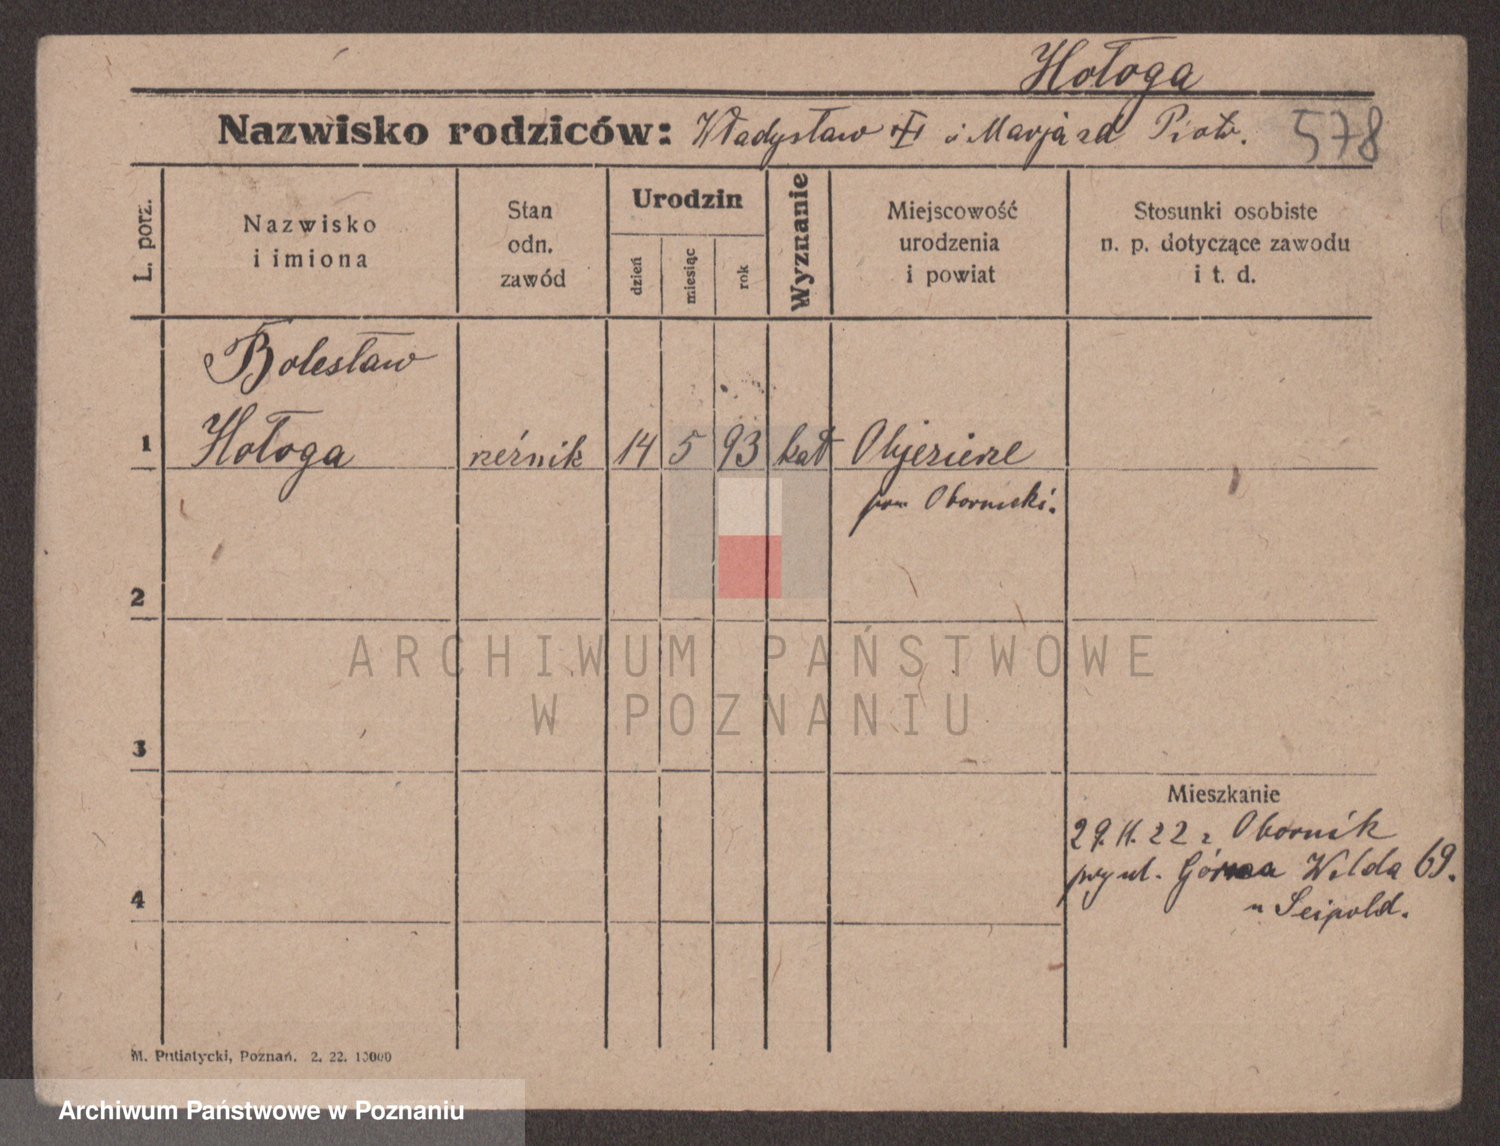 Hołoga
Nazwisko rodziców: Władysław i Marja zd Piotr. 578
L. porz.
Nazwisko
i imiona
Stan
odn.
zawód
Urodzin
dzień
miesiąc
rok
Wyznanie
Miejscowość
urodzenia
i powiat
Stosunki osobiste
n. p. dotyczące zawodu
i t. d.
Bolesław
1 Hołoga rzeźnik 14 5 93 kat Objezierze
pow. Obornicki.
2
ARCHIWUM PAŃSTWOWE
W POZNANIU
3
Mieszkanie
29.11.22 z Obornik
przy ul. Górna Wilda 69.
4
u Seipold.
M. Putiatycki, Poznań. 2. 22. 10000
Archiwum Państwowe w Poznaniu